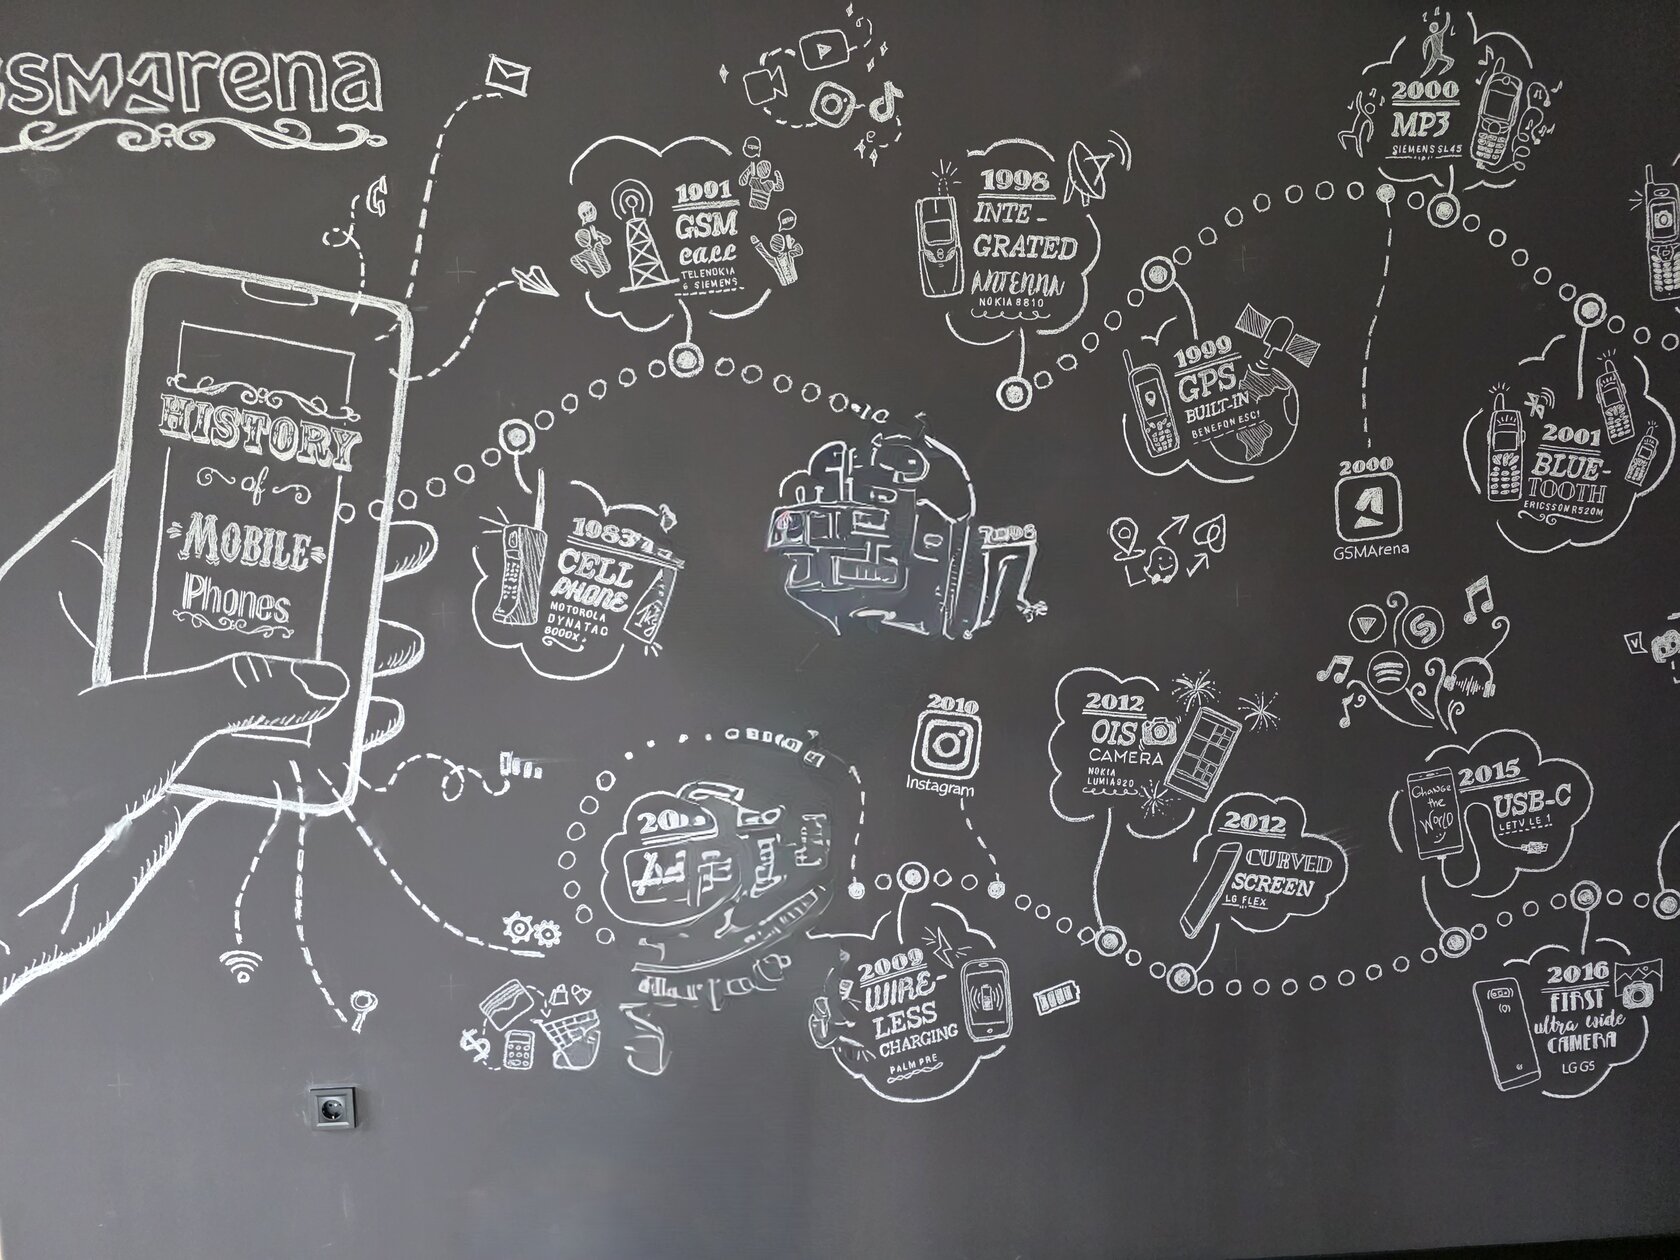 GSMArena
HISTORY
of
MOBILE
Phones
1983
CELL
PHONE
MOTOROLA
DYNATAC
8000X
1991
GSM
CALL
TELENOKIA
& SIEMENS
1998
INTE-
GRATED
ANTENNA
NOKIA 8810
1999
GPS
BUILT-IN
BENEFON ESC!
2000
MP3
SIEMENS SL45
2000
GSMArena
2001
BLUE-
TOOTH
ERICSSON R520M
2009
WIRE-
LESS
CHARGING
PALM PRE
2010
Instagram
2012
OIS
CAMERA
NOKIA
LUMIA 920
2012
CURVED
SCREEN
LG FLEX
2015
USB-C
LETV LE 1
Change
the
World
2016
FIRST
ultra wide
CAMERA
LG G5